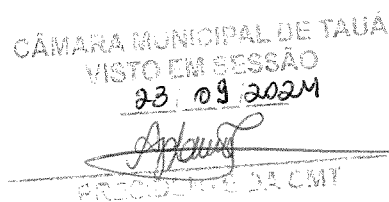 CÂMARA MUNICIPAL DE TAUÁ
VISTO EM SESSÃO
23 / 09 / 2024
PRESIDENTE DA CMT